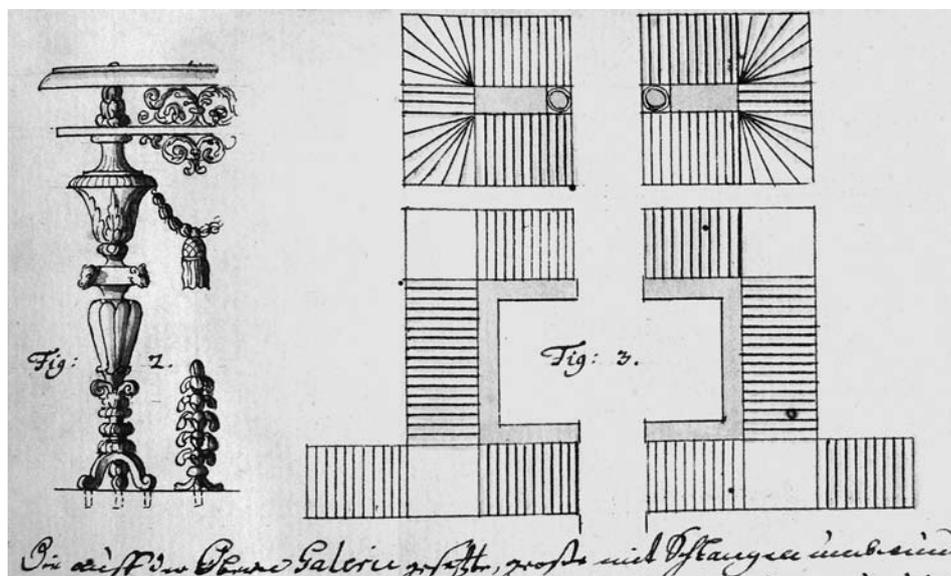 Fig: 2.
Fig: 3.
Die auff der Obern Galerie gesetzte, große mit Schlangen umbwun